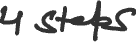 4 steps